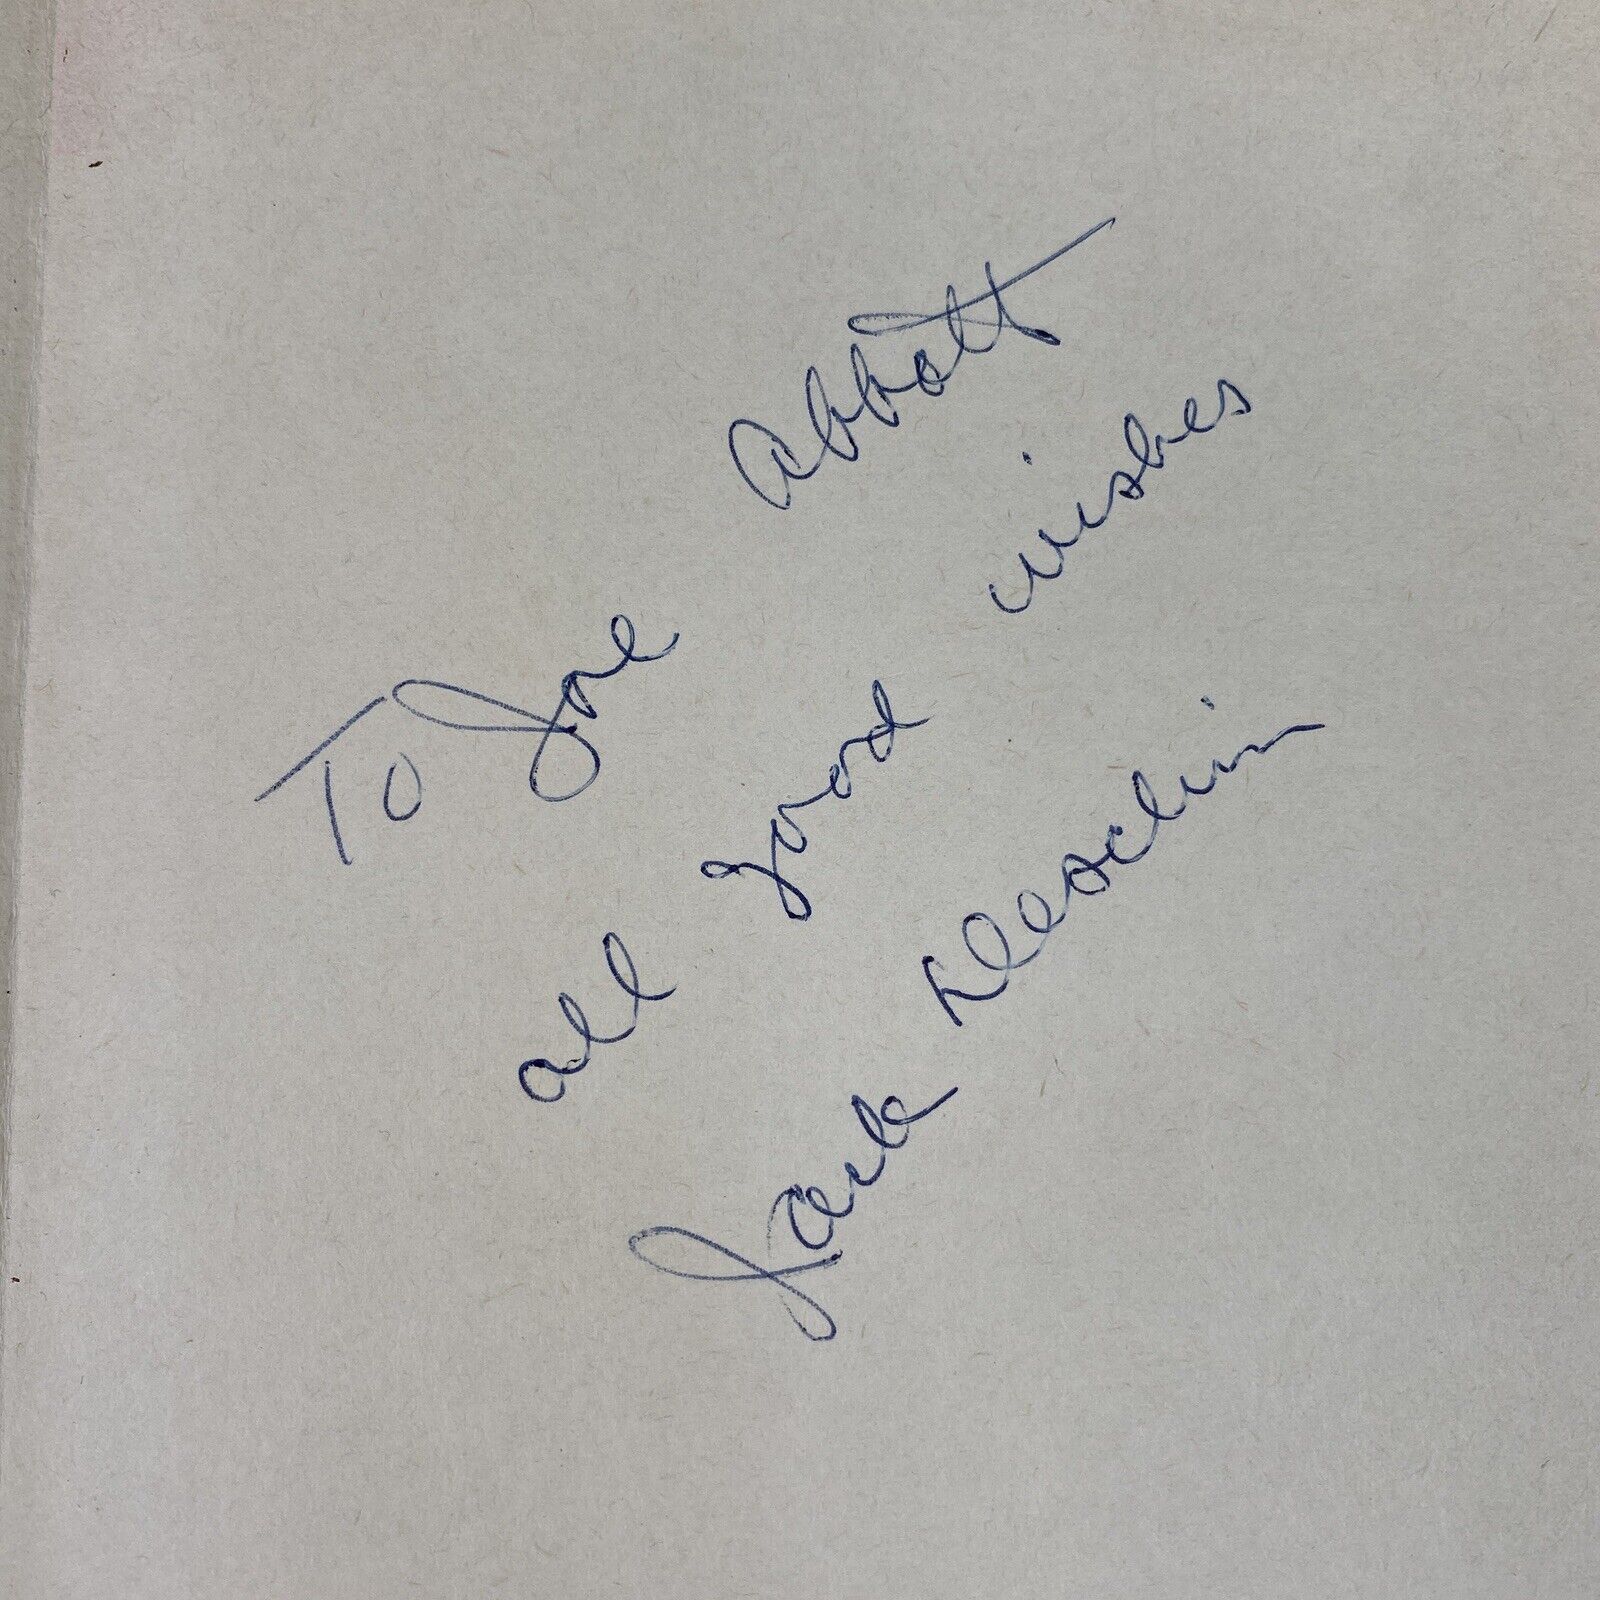 To Joe Abbott
all good wishes
Jack